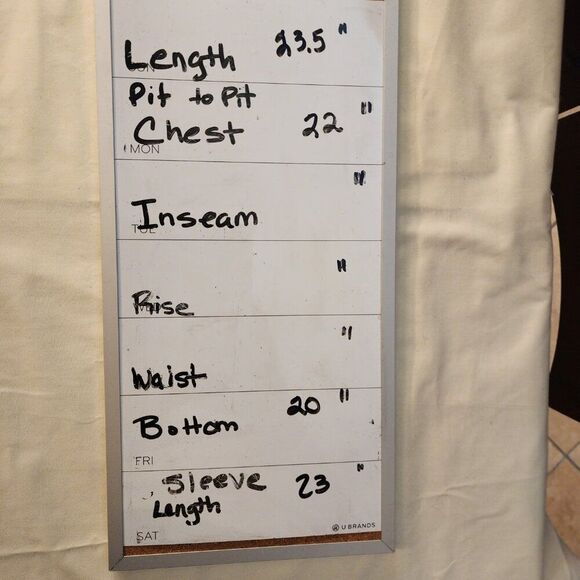 Length 23.5 "
SUN
Pit to Pit
Chest 22 "
MON
"
Inseam
TUE
"
Rise
"
Waist
20 "
Bottom
FRI
Sleeve 23 "
Length
U BRANDS
SAT